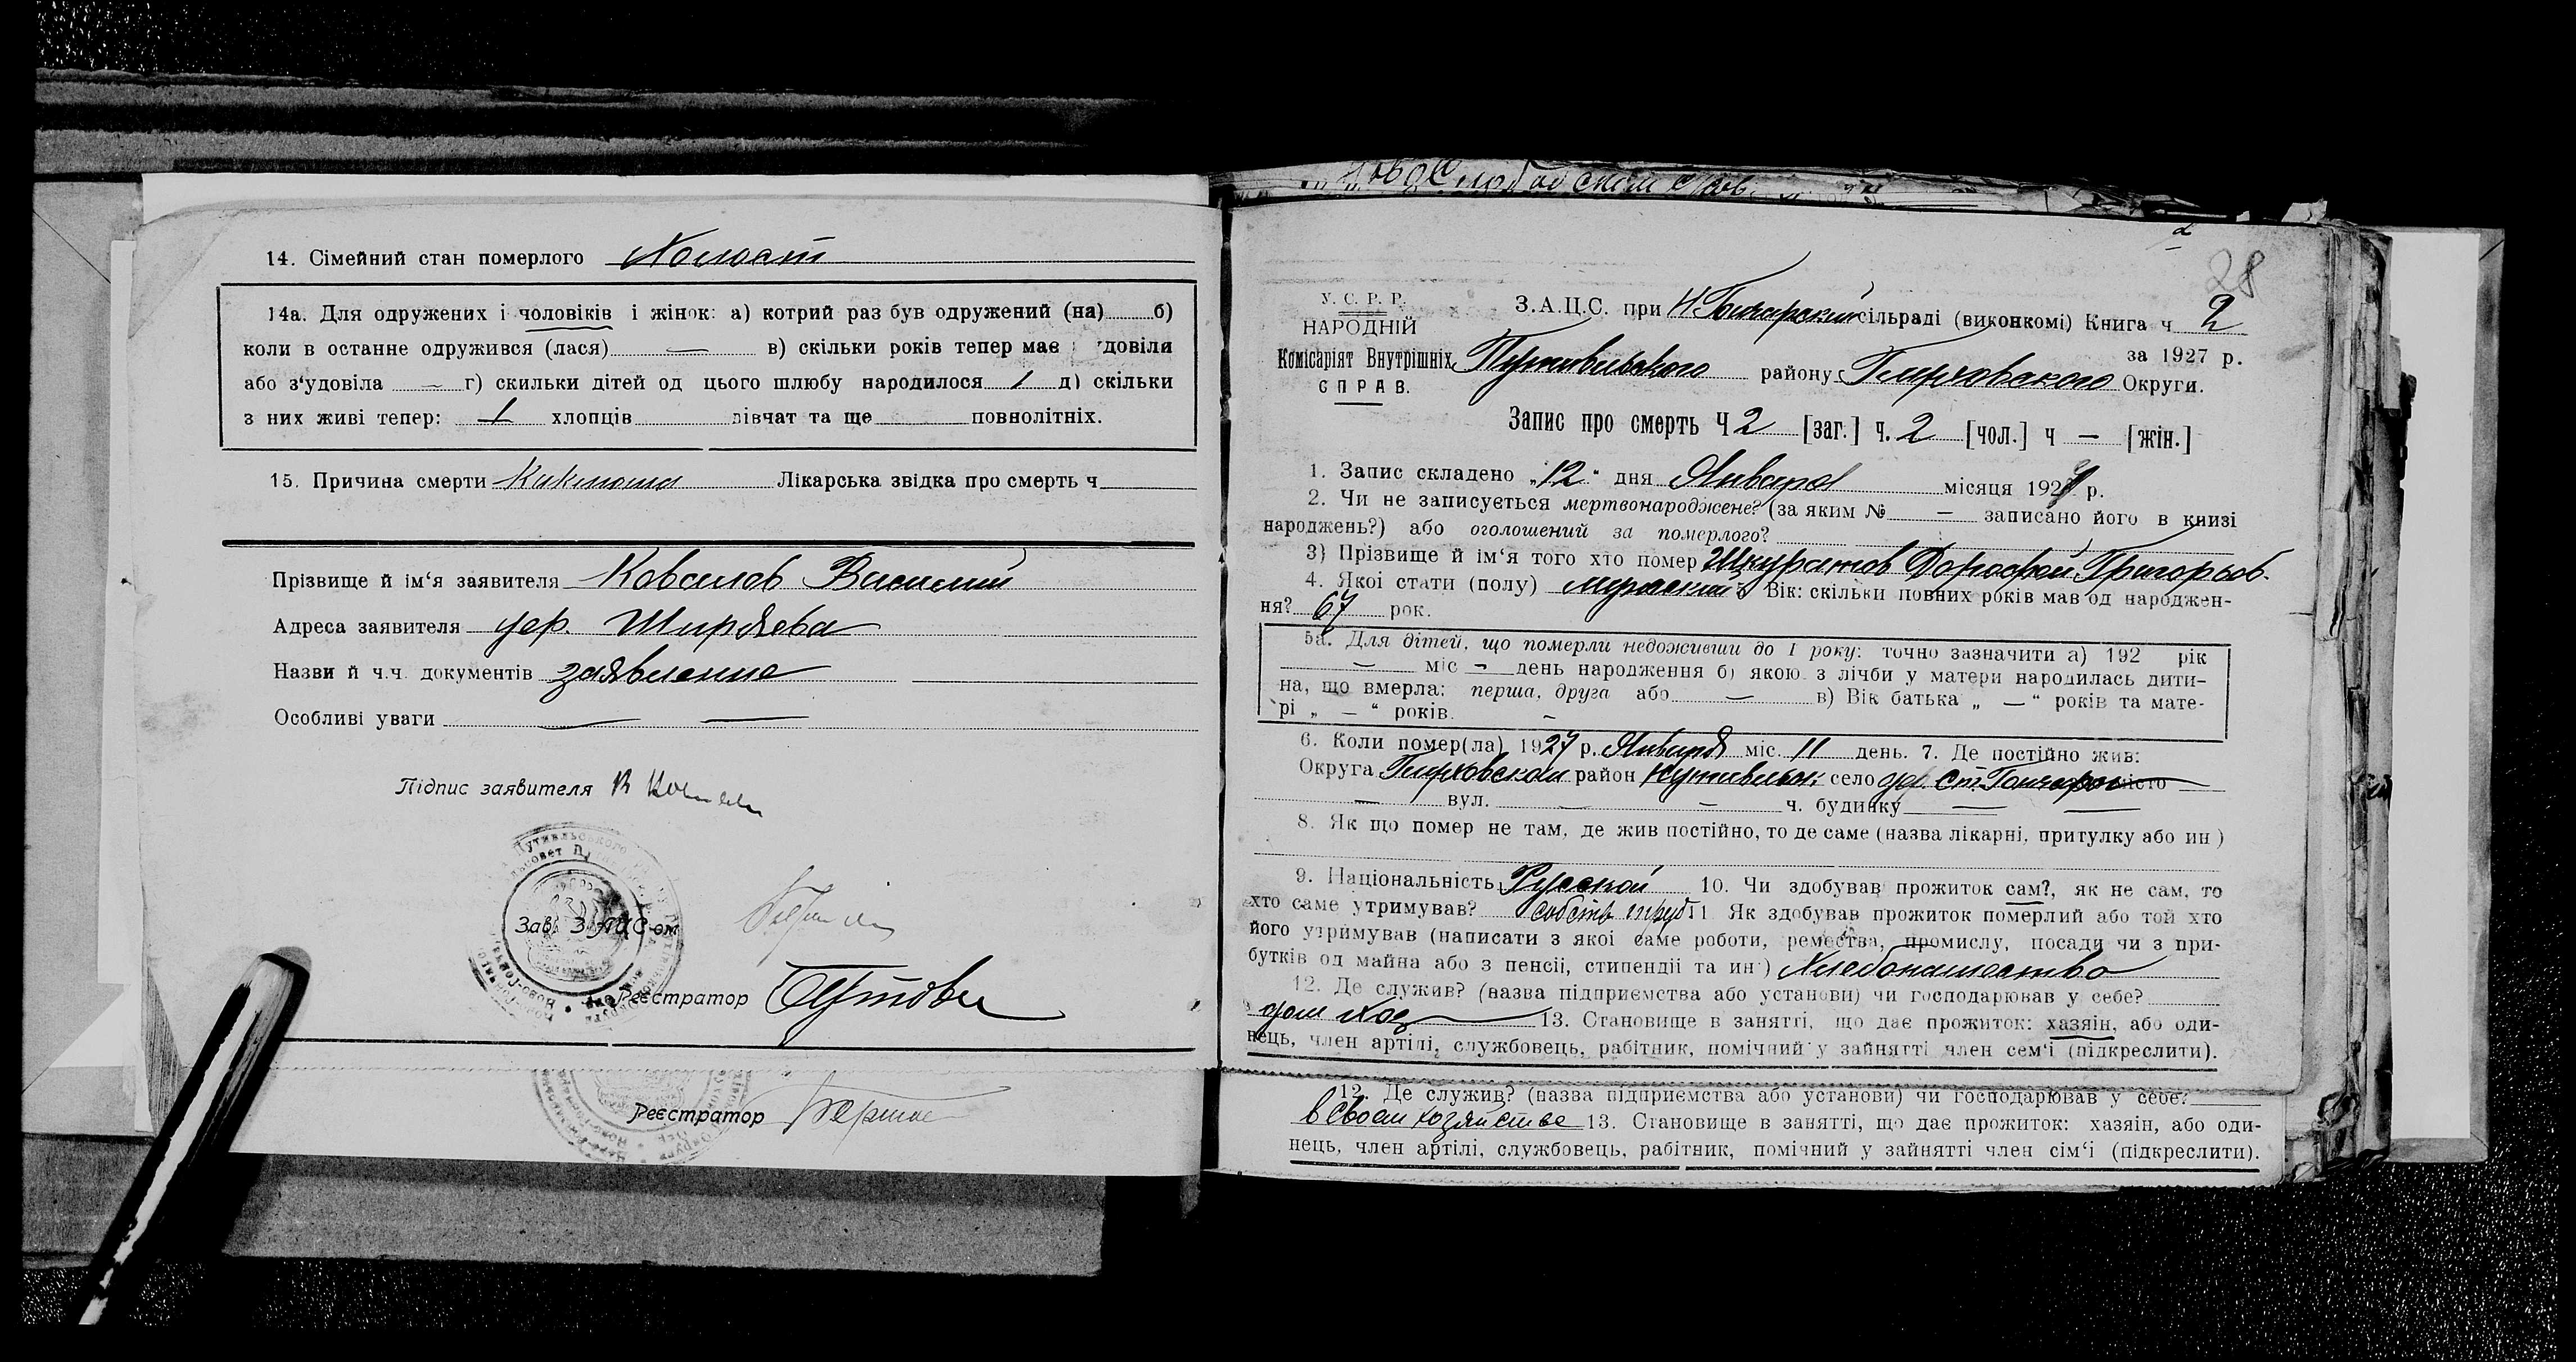 14. Сімейний стан померлого Холост
14а. Для одружених і чоловіків і жінок: а) котрий раз був одружений (на) б)
коли в останне одружився (лася) — в) скільки років тепер має довіли
або з‘удовіла — г) скильки дітей од цього шлюбу народилося 1 д) скільки
з них живі тепер: 1 хлопців дівчат та ще повнолітніх.
15. Причина смерти Лікарська звідка про смерть ч
Прізвище й ім‘я заявителя Ковалов Василий
Адреса заявителя дер. Ширяева
Назви й ч.ч. документів заявление
Особливі уваги — —
Підпис заявителя В
Зав. ЗАЦС-ом
Реєстратор
Реєстратор
28
У. С. Р. Р.
НАРОДНІЙ
Комісаріят Внутрішніх
СПРАВ.
З.А.Ц.С. при Н Гончарский сільраді (виконкомі) Книга ч 2
за 1927 р.
Путивльского району Глуховского Округи.
Запис про смерть Ч 2 [заг.] ч. 2 [чол.] ч — [жін.]
1. Запис складено „12“ дня Января місяця 1927 р.
2. Чи не записується мертвонароджене? (за яким № — записано його в книзі
народжень?) або оголошений за померлого?
3) Прізвище й ім‘я того хто помер Шкуратов Дорофей Григорьов.
4. Якої стати (полу) мужский 5 Вік: скільки повних років мав од народжен-
ня? 67 рок.
5а. Для дітей, що померли недоживши до 1 року: точно зазначити а) 192 рік
— міс — день народження б) якою з лічби у матери народилась дити-
на, що вмерла: перша, друга або — в) Вік батька „ — “ років та мате-
рі „ — “ років. —
6. Коли помер(ла) 1927 р. Января міс. 11 день. 7. Де постійно жив:
Округа Глуховском район Путивльск. село дер. Ст. Гончаров місто —
— вул. — — ч. будинку —
8. Як що помер не там, де жив постійно, то де саме (назва лікарні, притулку або ин )
9. Національність Русской 10. Чи здобував прожиток сам?, як не сам, то
хто саме утримував? собств труд 11 Як здобував прожиток померлий або той хто
його утримував (написати з якої саме роботи, ремества, промислу, посади чи з при-
бутків од майна або з пенсії, стипендії та ин ) Хлебопашество
12. Де служив? (назва підприємства або установи) чи господарював у себе?
дом хоз 13. Становище в занятті, що дає прожиток: хазяін, або оди-
нець, член артілі, службовець, рабітник, помічний у зайнятті член сем‘і (підкреслити).
12. Де служив? (назва підприємства або установи) чи господарював у себе?
в своем хозяйстве 13. Становище в занятті, що дає прожиток: хазяін, або оди-
нець, член артілі, службовець, рабітник, помічний у зайнятті член сім‘і (підкреслити).